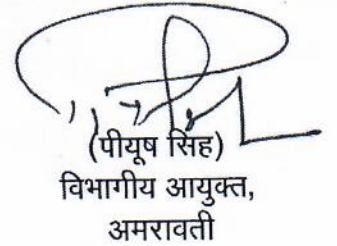 (पीयूष सिंह)
विभागीय आयुक्त,
अमरावती